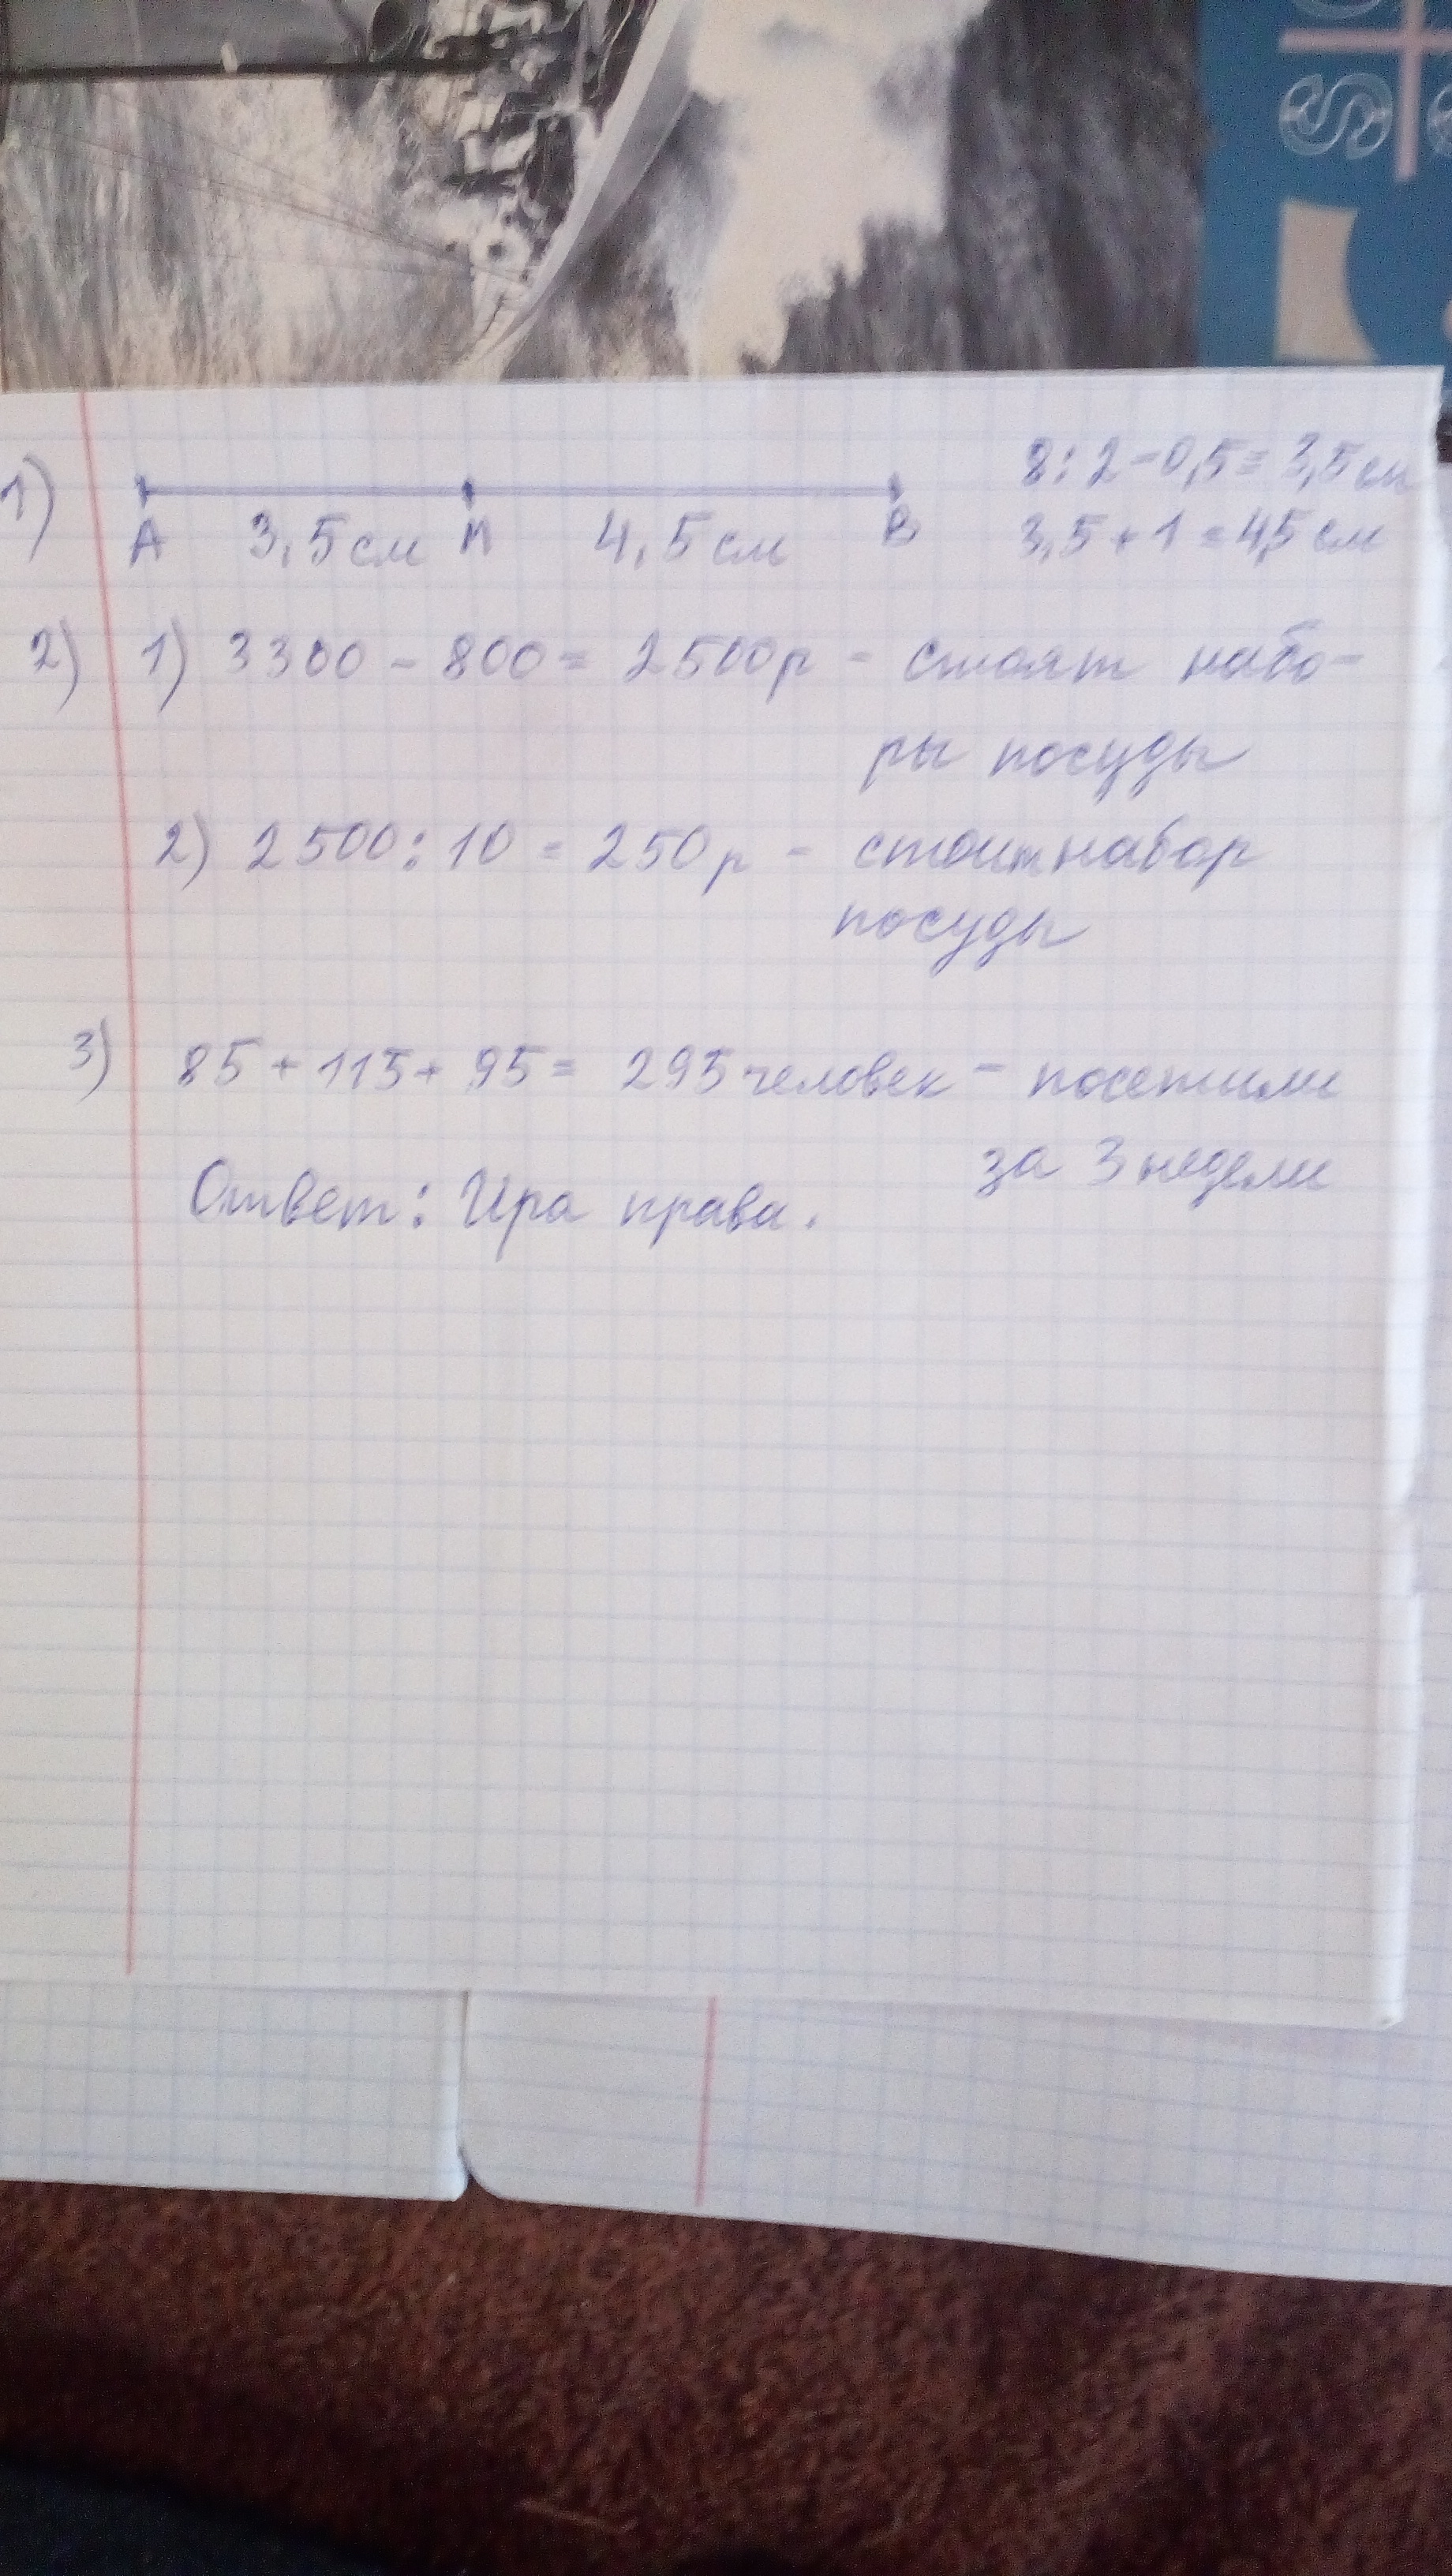 1)
8:2-0,5=3,5 см
3,5+1=4,5 см
А 3,5 см М 4,5 см В
2) 1) 3300 - 800 = 2500р - стоят набо-
ры посуды
2) 2500:10 = 250р - стоит набор
посуды
3) 85+115+95= 295 человек - посетили
за 3 недели
Ответ: Ира права.